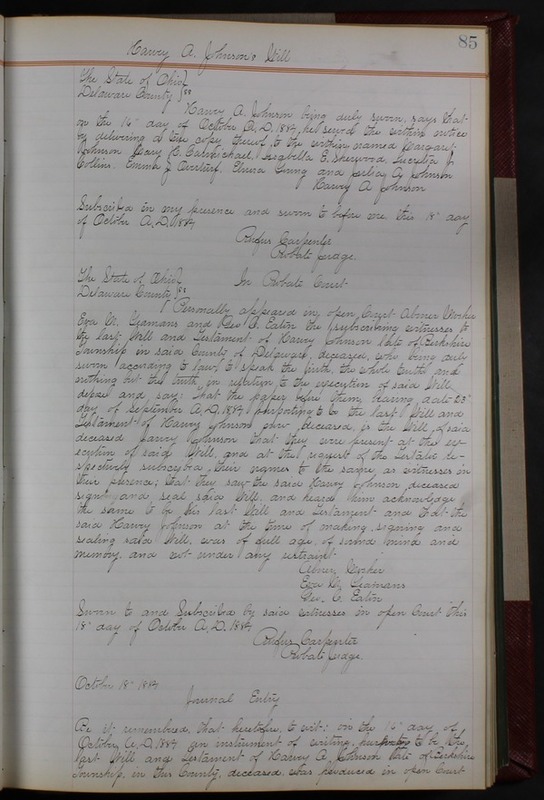 85
Harvey A. Johnson's Will
The State of Ohio
Delaware County } ss
Harvey A. Johnson being duly sworn, says that
on the 16" day of October A.D. 1884, he served the within notice
by delivering a true copy thereof, to the within named Margaret
Johnson Mary B. Carmichael, Isabella E. Sherwood, Lucretia J
Collins. Emma J and A Johnson
Harvey A Johnson
Subscribed in my presence and sworn to before me this 18" day
of October A.D. 1884
Rufus Carpenter
Probate Judge.
The State of Ohio In Probate Court
Delaware County } ss
Personally appeared in open Court Abner
Eva M. Seamans and Geo C. Eaton the subscribing witnesses to
the last Will and Testament of Harvey Johnson late of Berkshire
Township in said County of Delaware, deceased, who being duly
sworn according to law to speak the truth, the whole truth and
nothing but the truth, in relation to the execution of said Will,
depose and say: That the paper before them, bearing date 23"
day of September A.D. 1884 purporting to be the last Will and
Testament of Harvey Johnson now deceased, is the Will of said
deceased Harvey Johnson that they were present at the ex-
ecution of said Will, and at the request of the Testator re-
spectively subscribed their names to the same, as witnesses in
their presence; that they saw the said Harvey Johnson deceased
sign and seal said Will, and heard him acknowledge
the same to be his last Will and Testament and that the
said Harvey Johnson at the time of making, signing and
sealing said Will, was of full age, of sound mind and
memory, and not under any restraint.
Abner
Eva M. Seamans
Geo. C. Eaton
Sworn to and Subscribed by said witnesses in open Court this
18" day of October A.D. 1884
Rufus Carpenter
Probate Judge.
October 18" 1884
Journal Entry
Be it remembered, that heretofore, to wit: on the 16" day of
October, A.D. 1884 an instrument of writing, purporting to be the
last Will and Testament of Harvey A. Johnson late of Berkshire
Township, in this County, deceased, was produced in open Court